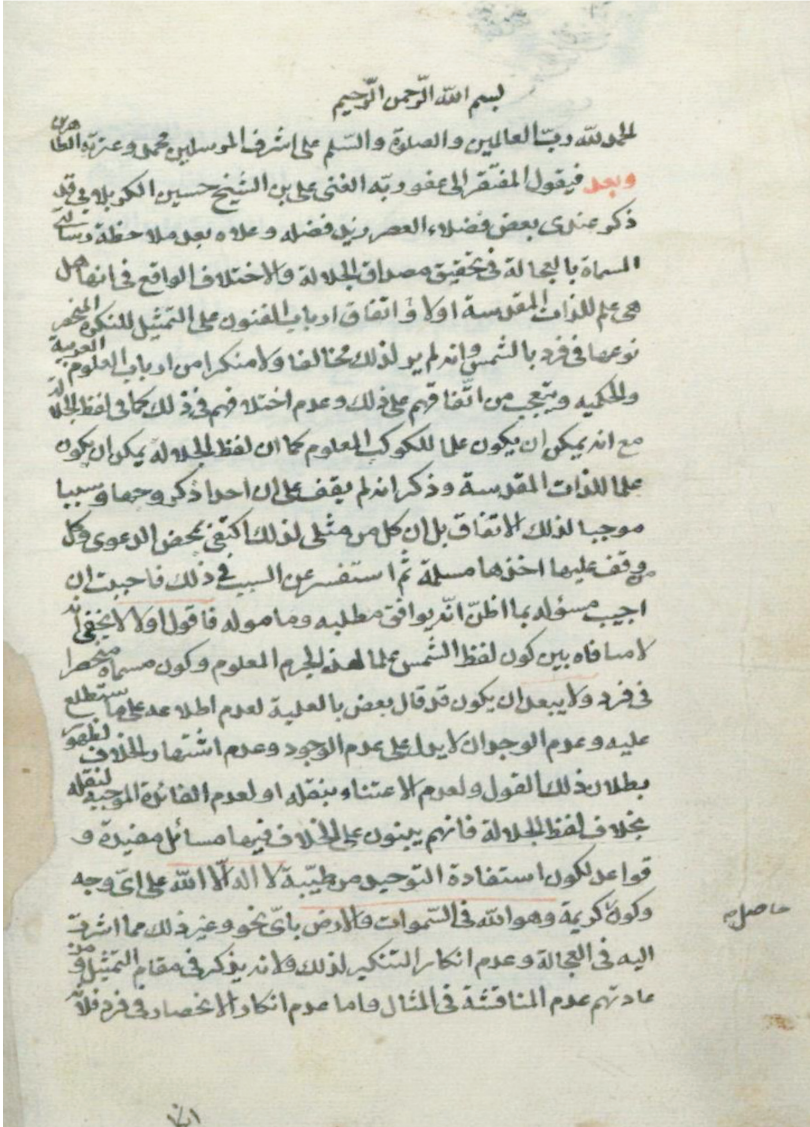 بسم الله الرّحمن الرّحيم
الحمد لله ربّ العالمين و الصلوة و السّلم على اشرف المرسلين محمد و عترته الطاهرين
وبعد فيقول المفتقر الى عفو ربّه الغنى على بن الشيخ حسين الكربلاوى قد
ذكر عندى بعض فضلاء العصر زيد فضله و علاه بعد ملاحظة رسالتى
المسماة بالعجالة فى تحقيق مصداق الجلالة والاختلاف الواقع فى انها هل
هى علم للذات المقدسة اولا و اتفاق ارباب الفنون على التمثيل للنكرة المنحصر
نوعها فى فرد بالشمس وانه لم ير لذلك مخالفا ولا منكرا من ارباب العلوم العربية
والحكميه ويتعجب من اتّفاقهم على ذلك وعدم اختلافهم فى ذلك كما فى لفظ الجلالة
مع انه يمكن ان يكون علما للكوكب المعلوم كما ان لفظ الجلالة يمكن ان يكون
علما للذات المقدسة وذكر انه لم يقف على ان احدا ذكر وجها و سببا
موجبا لذلك الاتفاق بل ان كل من مثلى لذلك اكتفى بمحض الدعوى وكل
من وقف عليها اخذها مسلمة ثم استفسر عن السبب فى ذلك فاحببت ان
اجيب مسؤله بما اظنّ انّه يوافق مطلبه و ماموله فاقول اولا لا يخفى انه
لا منافاه بين كون لفظ الشمس علما لهذا الجرم المعلوم وكون مسماه منحصرا
فى فرد ولا يبعد ان يكون قد قال بعض بالعلمية لعدم اطلاعه على ما ستطلع
عليه وعدم الوجدان لا يدل على عدم الوجود وعدم اشتهار الخلاف لظهور
بطلان ذلك القول ولعدم الاعتناء بنقله او لعدم الفائدة الموجبه لنقله
بخلاف لفظ الجلالة فانهم يبنون على الخلاف فيها مسائل مفيدة و
قواعد لكون استفادة التوحيد من طيّبة لا اله الّا الله على اىّ وجه
وكون كريمة وهو الله فى السّموات والارض باىّ نحو و غير ذلك مما اشرت
حاصله
اليه فى العجالة وعدم انكار التنكير لذلك ولانه يذكر فى مقام التمثيل و من
عادتهم عدم المناقشة فى المثال واما عدم انكار الانحصار فى فرد فلانّه